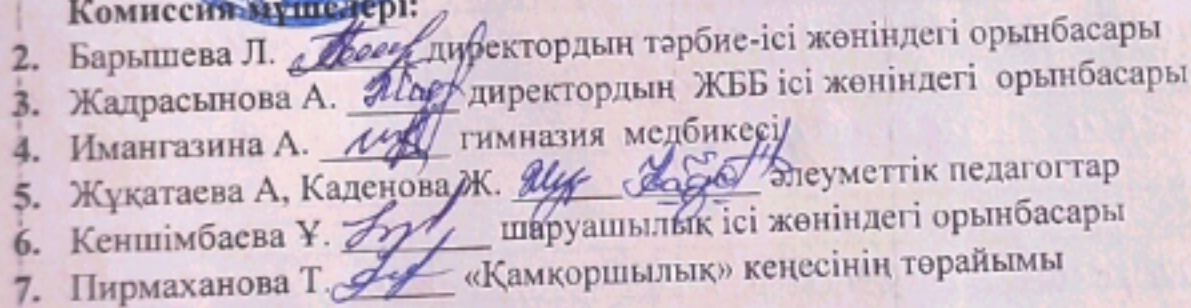 Комиссия мүшелері:
2. Барышева Л. директордың тәрбие-ісі жөніндегі орынбасары
3. Жадрасынова А. директордың ЖББ ісі жөніндегі орынбасары
4. Имангазина А. гимназия медбикесі
5. Жұқатаева А, Каденова Ж. әлеуметтік педагогтар
6. Кеншімбаева Ұ. шаруашылық ісі жөніндегі орынбасары
7. Пирмаханова Т. «Қамқоршылық» кеңесінің төрайымы